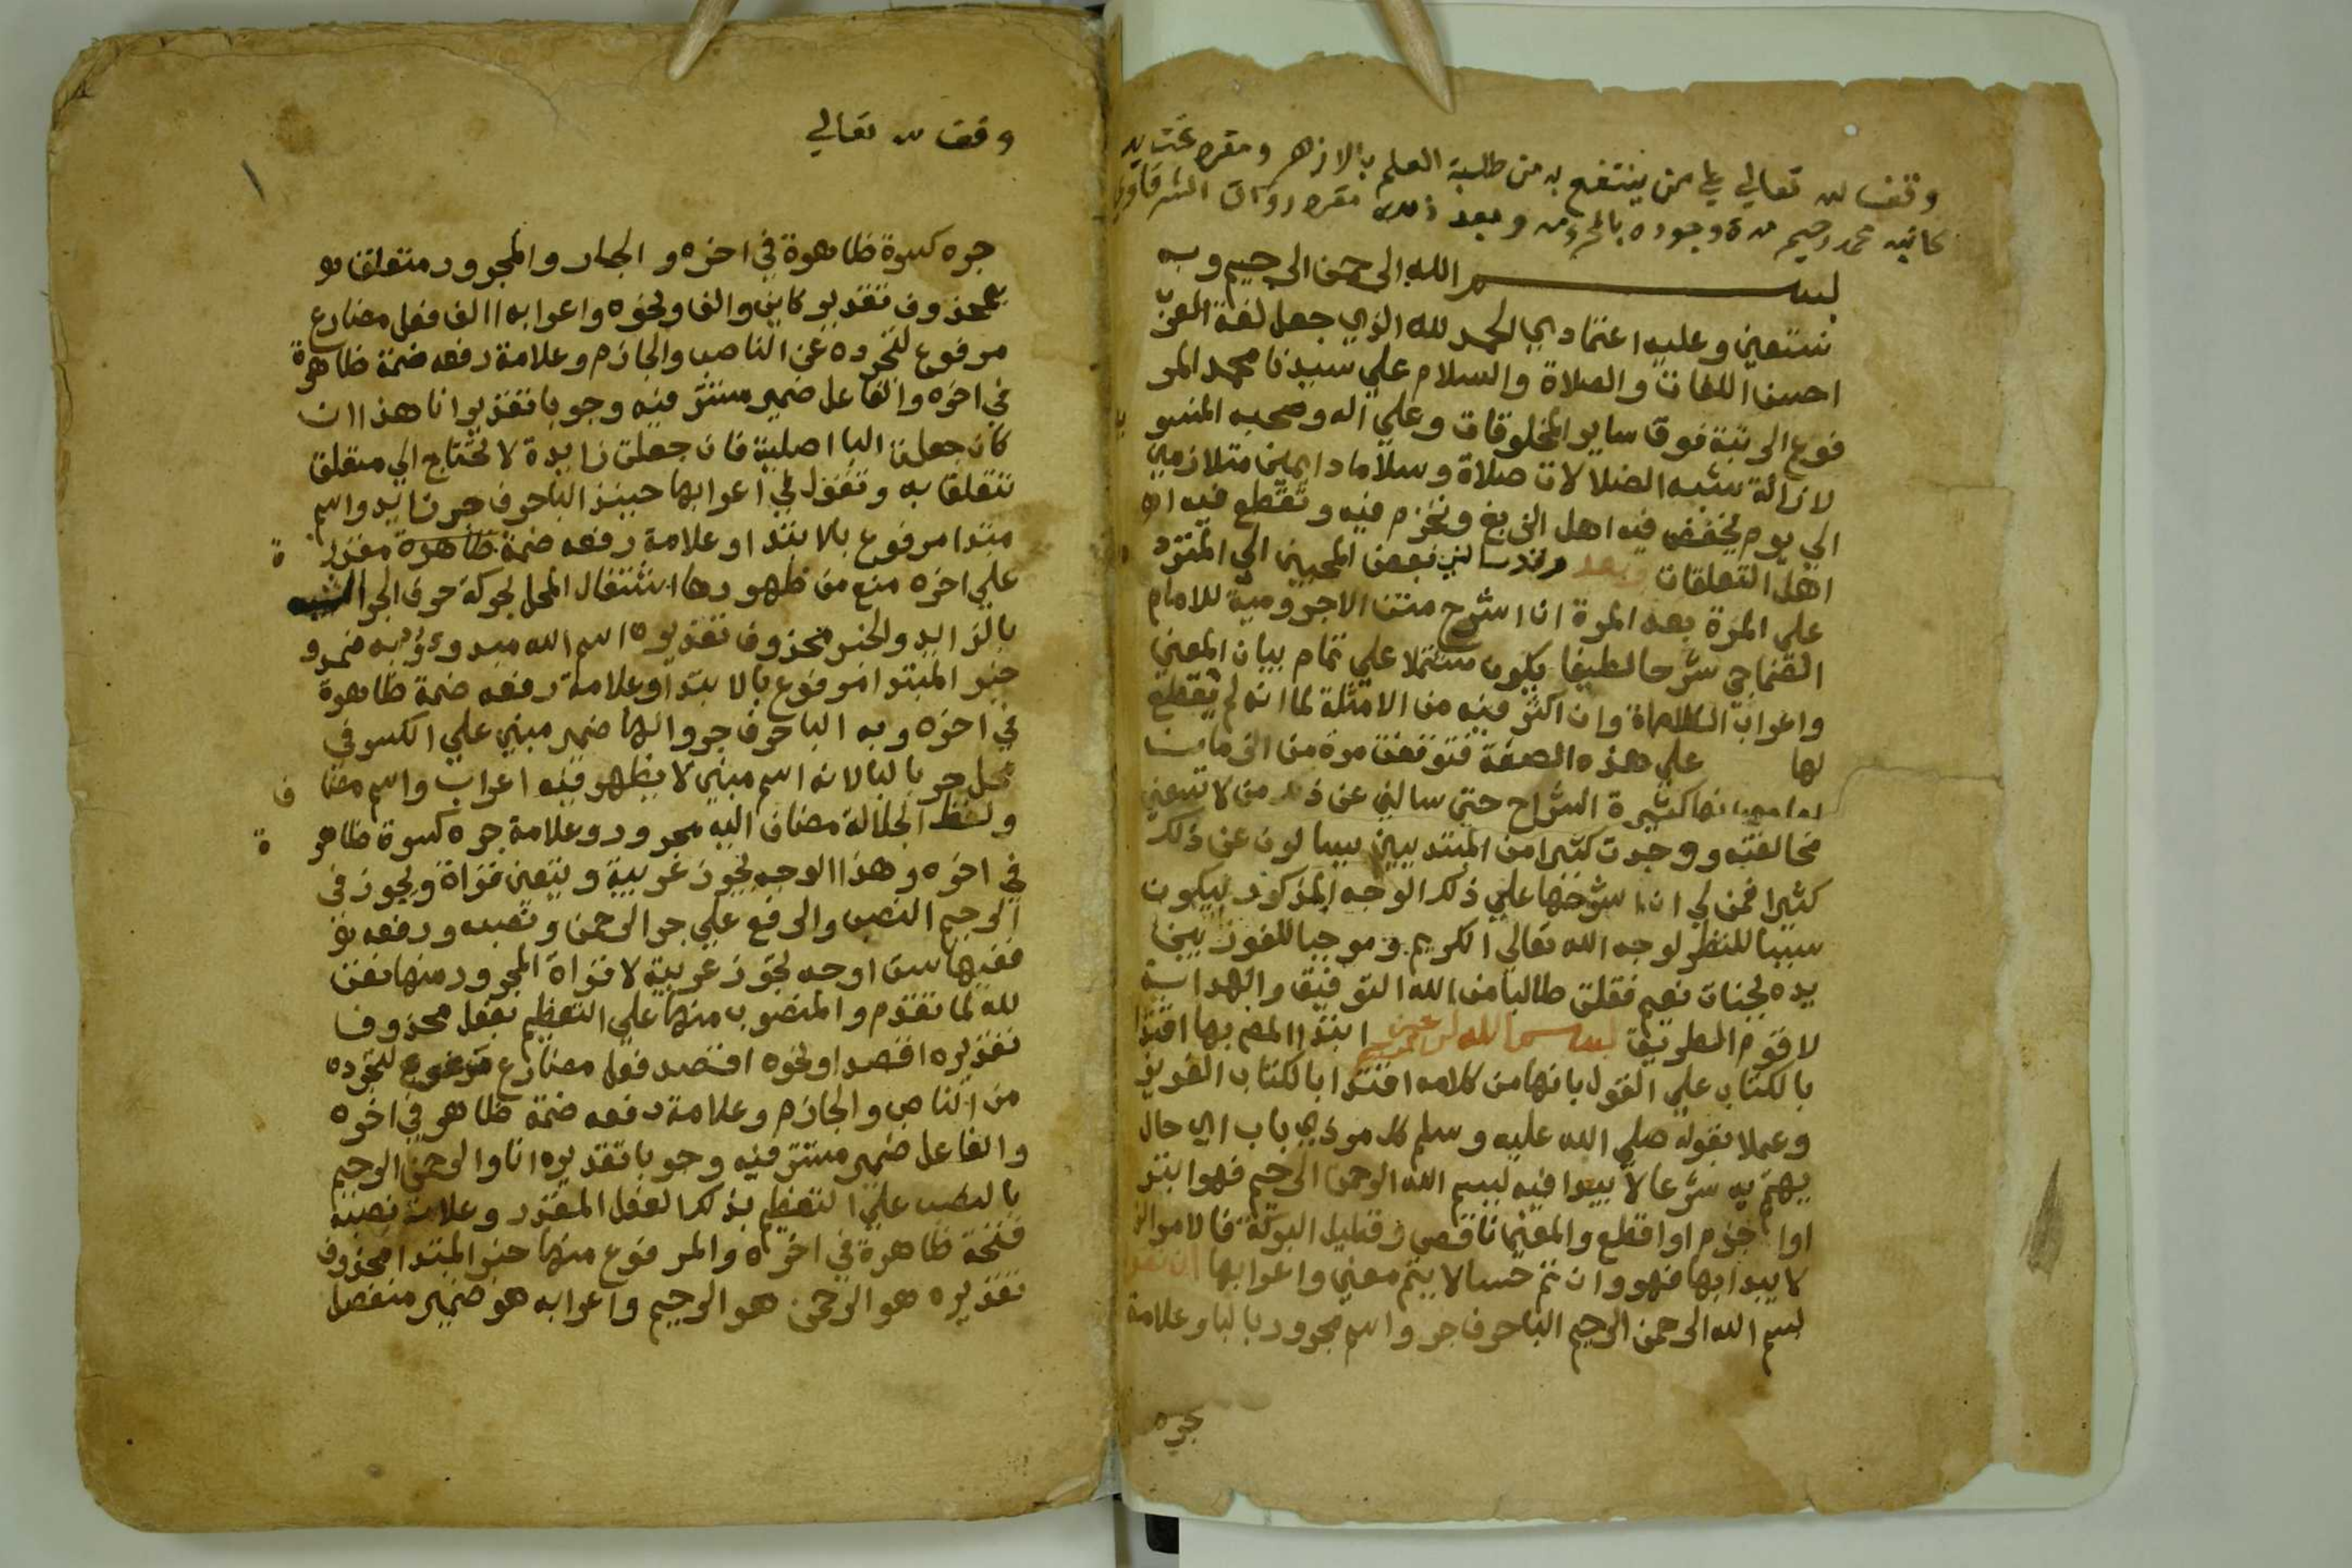 وقف لله تعالي علي من ينتفع به من طلبة العلم بالازهر ومقره تحت يد
كاتبه محمد رحيم مدة وجوده بالمحروسه وبعد ذلك مقره رواق الشرقاوي
بسم الله الرحمن الرحيم وبه
نستعين وعليه اعتمادي الحمد لله الذي جعل لغة العرب
احسن اللغات والصلاة والسلام علي سيدنا محمد المر
فوع الرتبة فوق ساير المخلوقات وعلي اله وصحبه المنصو
لازالة شبه الضلالات صلاة وسلاما دايمين متلازمين
الي يوم يخفض فيه اهل الزيغ ونجزم فيه وتقطع فيه
اهل التعلقات وبعد فقد سالني بعض المحبين الي المتردد
علي المرة بعد المرة ان اشرح متن الاجرومية للامام
الصنهاجي شرحا لطيفا يكون مشتملا علي تمام بيان المعني
واعراب الكلمات وان اكثر فيه من الامثلة لما انه لم يقطع
لها علي هذه الصفة فتوقفت مرة من الزمان
كثيرة الشراح حتي سالني عن ذلك من لا تسعني
مخالفته ووجدت كثيرا من المبتديين يسالون عن ذلك
كثيرا فعن لي ان اشرحها علي ذلك الوجه المذكور ليكون
سببا للنظر لوجه الله تعالي الكريم وموجبا للفوز
يده لجنات نعيم فقلت طالبا من الله التوفيق والهداية
لاقوم الطريق بسم الله الرحمن الرحيم ابتدا المص بها اقتدا
بالكتاب علي القول بانها من كلامه اقتدا بالكتاب العزيز
وعملا بقوله صلي الله عليه وسلم كل امر ذي باب اي حال
يهتم به شرعا لا يبدا فيه ببسم الله الرحمن الرحيم فهو ابتر
او اجزم او اقطع والمعني ناقص وقليل البركة فالامر الذ
لا يبدا بها فهو وان تم حسا لا يتم معني واعرابها ان تقو
بسم الله الرحمن الرحيم البا حرف جر واسم مجرور بالبا وعلامة
جره
وقف لله تعالي
جره كسرة ظاهرة في اخره والجار والمجرور متعلق
بمحذوف تقديره كاين والف او نحوه واعرابه االف فعل مضارع
مرفوع لتجرده عن الناصب والجازم وعلامة رفعه ضمة ظاهرة
في اخره والفاعل ضمير مستتر فيه وجوبا تقديره انا هذا ان
كان جعلت البا اصلية فان جعلت زايدة لا تحتاج الي متعلق
تتعلق به وتقول في اعرابها حينيذ البا حرف جر زايد واسم
مبتدا مرفوع بالابتدا وعلامة رفعه ضمة ظاهرة مقدرة
علي اخره منع من ظهورها اشتغال المحل بحركة حرف الجر الشبيه
بالزايد والخبر محذوف تقديره اسم الله مبدو به
خبر المبتدا مرفوع بالابتدا وعلامة رفعه ضمة ظاهرة
في اخره وبه البا حرف جر والها ضمير مبني علي الكسر في
محل جر بالبا لانه اسم مبني لا يظهر فيه اعراب واسم مضاف
ولفظ الجلالة مضاف اليه مجرور وعلامة جره كسرة ظاهرة
في اخره وهذا الوجه يجوز عربية ويتعين قراة ويجوز في
الرحيم النصب والرفع علي جر الرحمن ونصبه ورفعه
ففيها ست اوجه تجوز عربية لا قراة المجرور منها نعت
لله لما تقدم والمنصوب منها علي التعظيم بفعل محذوف
تقديره اقصد او نحوه اقصد فعل مضارع مرفوع لتجرده
من الناصب والجازم وعلامة رفعه ضمة ظاهر في اخره
والفاعل ضمير مستتر فيه وجوبا تقديره انا والرحمن الرحيم
بالنصب علي التعظيم بذلك الفعل المقدر وعلامة نصبه
فتحة ظاهرة في اخره والمرفوع منها خبر المبتدا محذوف
تقديره هو الرحمن هو الرحيم واعرابه هو ضمير منفصل